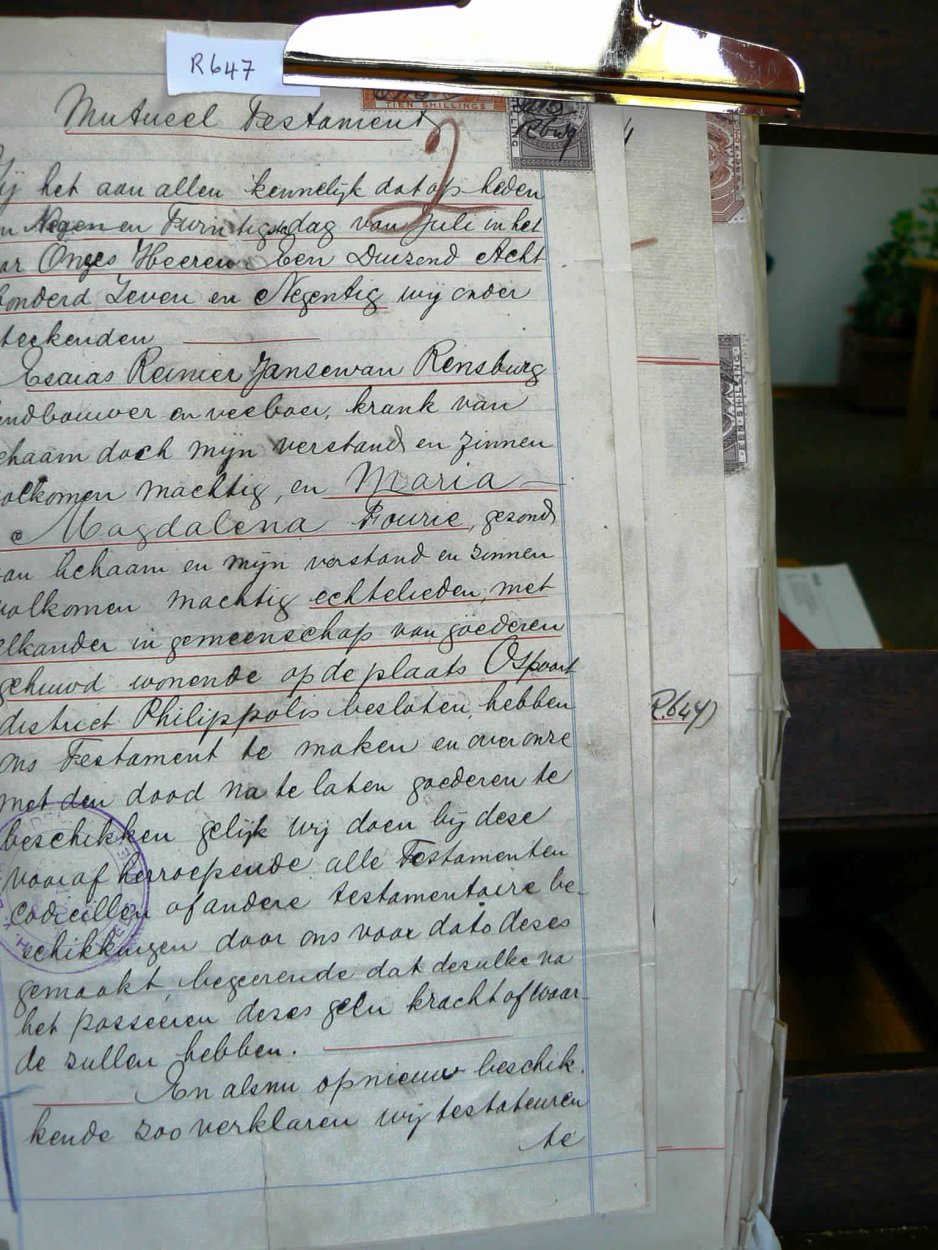 R647
TIEN SHILLINGS
Mutueel Testament
2
ij het aan allen kennelijk dat op heden
n Negen en Twintigsdag van Juli in het
ar Onzes Heeren Een Duizend Acht
onderd Zeven en Negentig wij onder
teekenden
Esaias Reinier Jansevan Rensburg
endbouwer en veeboer, krank van
chaam doch mijn verstand en zinnen
olkomen machtig, en Maria
Magdalena Fourie, gezond
an lichaam en mijn verstand en zinnen
volkomen machtig echtelieden, met
elkander in gemeenschap van goederen
gehuwd wonende op de plaats Ospoort
district Philippolis besloten, hebben
ons Testament te maken en over onze
met den dood na te laten goederen te
beschikken gelijk wij doen bij dese
vooraf herroepende alle Testamenten
codicillen of andere testamentaire be-
schikkingen door ons voor dato deses
gemaakt, begeerende dat desulke na
het passeeren deses geln kracht of waar-
de zullen hebben.
En alsnu opnieuw beschik.
kende zoo verklaren wij testateuren
te
EEN SHILLING
R647)